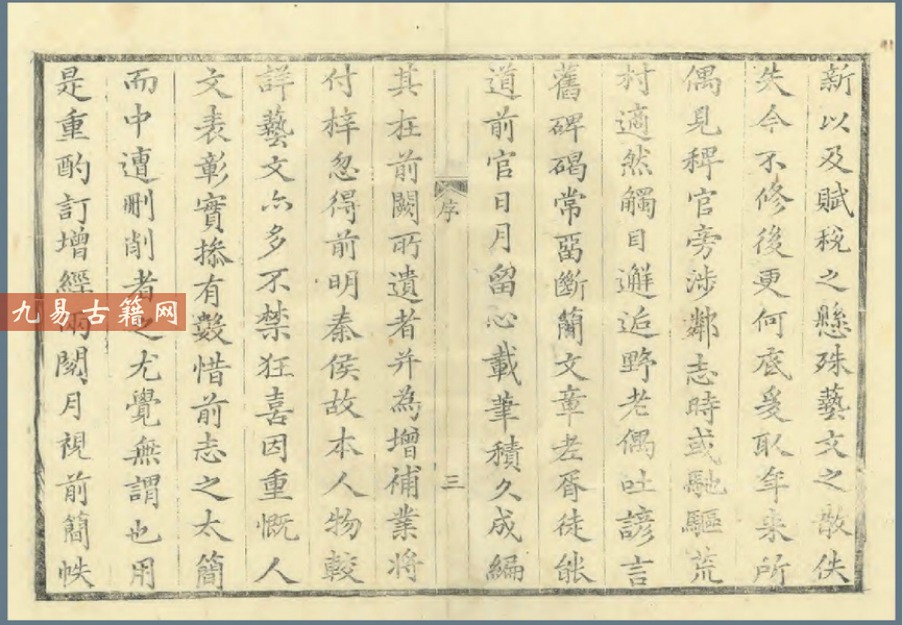 新以及賦稅之懸殊藝文之散佚
失今不修後更何底爰取年来所
偶見稗官旁涉鄰志時或馳驅荒
村適然觸目邂逅野老偶吐諺言
舊碑碣常畱斷簡文章老胥徒能
道前官日月留心載筆積久成編
序
三
其在前闕所遺者并為增補業將
付梓忽得前明秦侯故本人物較
詳藝文亦多不禁狂喜因重慨人
文表彰實摻有數惜前志之太簡
而中遭删削者之尤覺無謂也用
是重酌訂增經兩閱月視前簡帙
九易古籍网